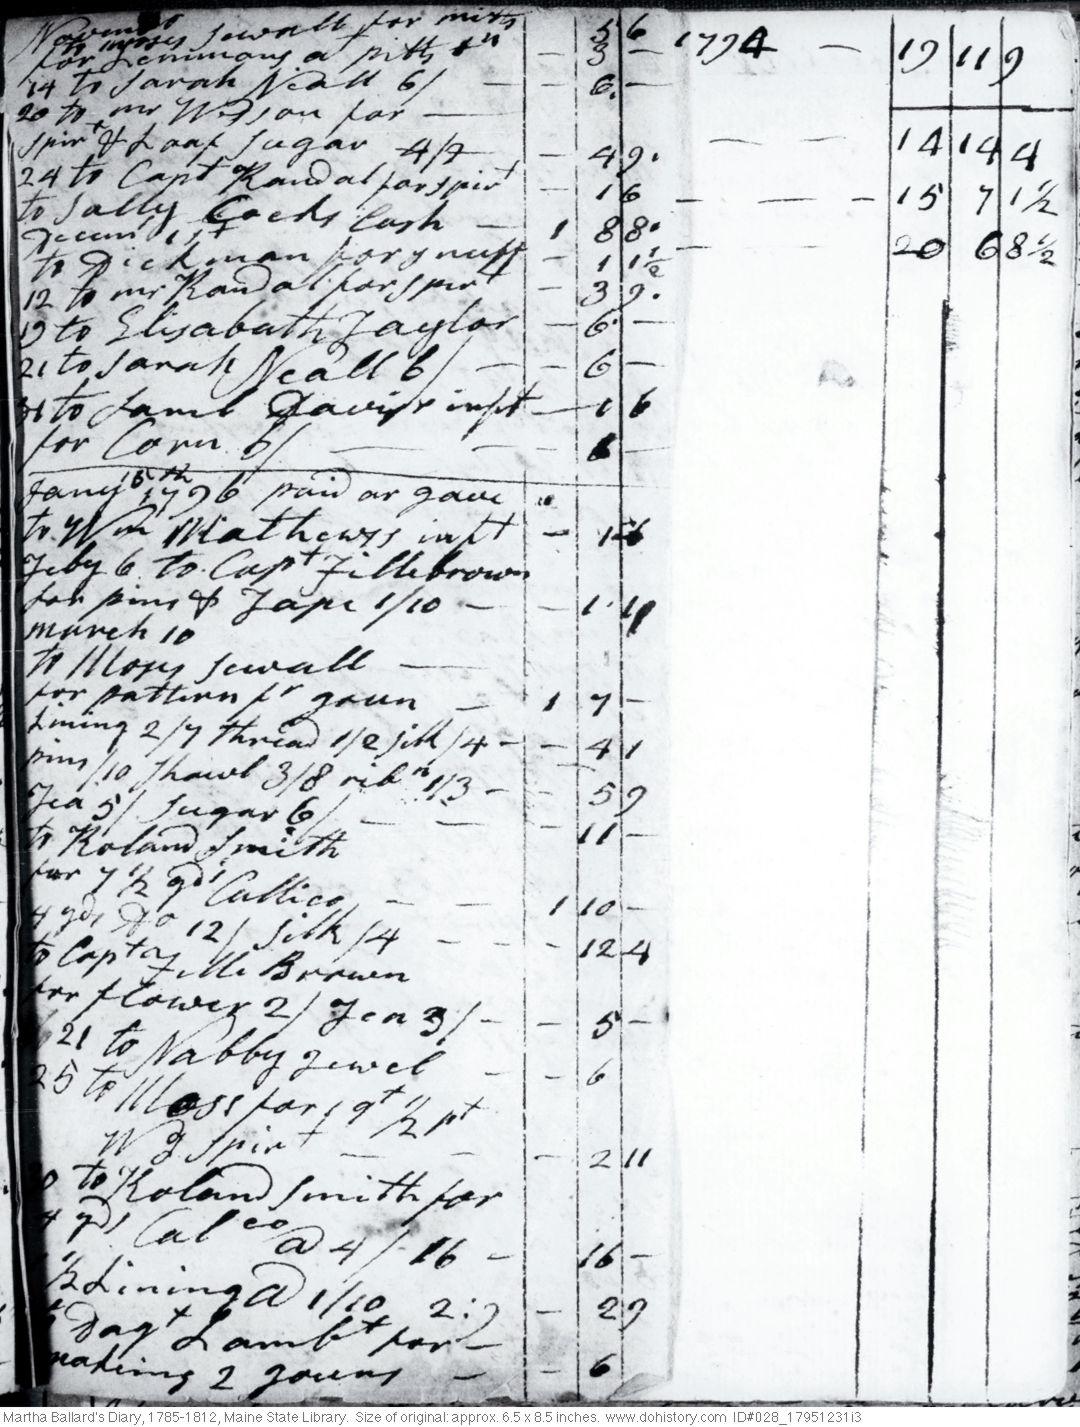 to moses Sewall for mitts — 5 6
for Lemmons a pitts — 3 —
14 to Sarah Neall 6/ — — 6. —
20 to mr Wesson for —
spirt & Loaf Sugar 4/9 — 4 9.
24 to Capt Randal for spirt — 1 6
to Sally Cocks Cash — 1 8 8.
Decem 1st
to Dickman for snuff — 1 1 1/2
12 to mr Randal for spirt — 3 9.
19 to Elisabath Taylor — 6. —
21 to Sarah Neall 6/ — — 6 —
31 to Saml Daviss inft — 1 6
for Corn 6/ — — 6 —
Jany 15th 1796 paid or gave
to Wm Mathewss inft — 1 6
Feby 6 to Capt Fillebrown
for pins & Tape 1/10 — — 1 10
march 10
to Moses Sewall —
for pattern fr goun — 1 7 —
Lining 2/7 thread 1/2 silk /4 — — 4 1
pins /10 Shawl 3/8 ribn 1/3 — — 5 9
Tea 5/ Sugar 6/ — — — 11 —
to Roland Smith
for 7 1/2 yds Callico, — — 1 10 —
4 yds Do 12/ silk /4 — — 12 4
to Capt Fille Brown
for flower 2/ Tea 3/ — — 5 —
21 to Nabby Jewel — — 6
25 to Moss for 1 qt 1/2 pt
W g spirt — — — 2 11
to Roland Smith for
4 yds Calco @ 4/ 16 — 16 —
1/2 Lining @ 1/10 2:9 — 2 9
Dagt Lambt for —
making 2 gouns — — 6
1794 — 19 11 9
— — — 14 14 4
— — — 15 7 1 1/2
— — 20 6 8 1/2
Martha Ballard's Diary, 1785-1812, Maine State Library. Size of original: approx. 6.5 x 8.5 inches. www.dohistory.com ID#028_17951231i3